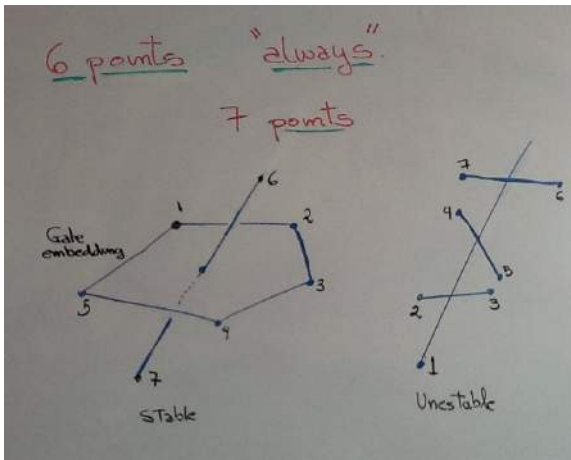 6 points "always".
7 points
Gale
embedding
1
2
3
4
5
6
7
Stable
7
6
4
5
2
3
1
Unestable